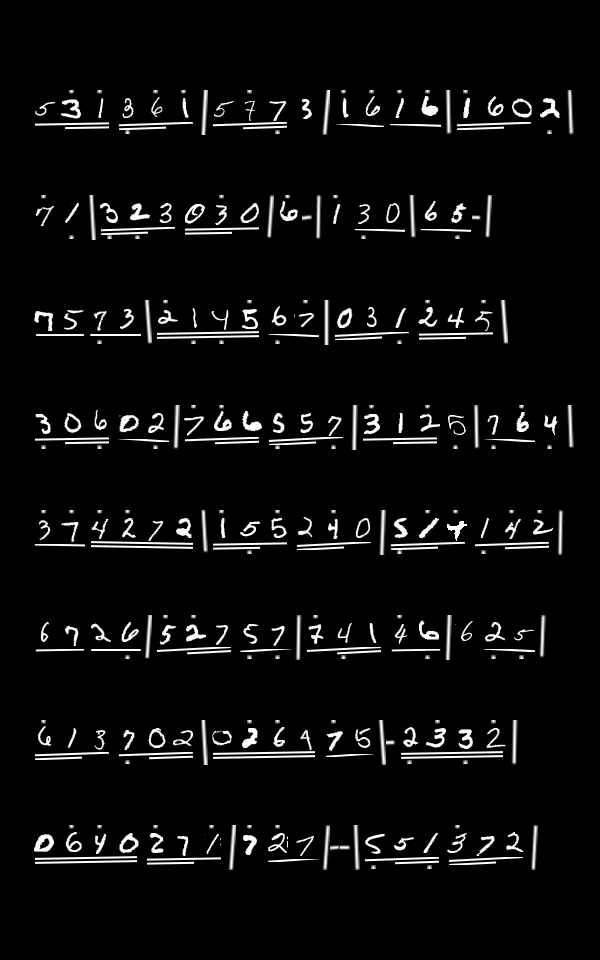 531361|5773|1616|1602|
71|323030|6-|130|65-|
7573|214567|031245|
30602|766557|3125|764|
374272|155240|517142|
6726|52757|74146|625|
613702|026475|-2332|
0640271|727|--|551372|